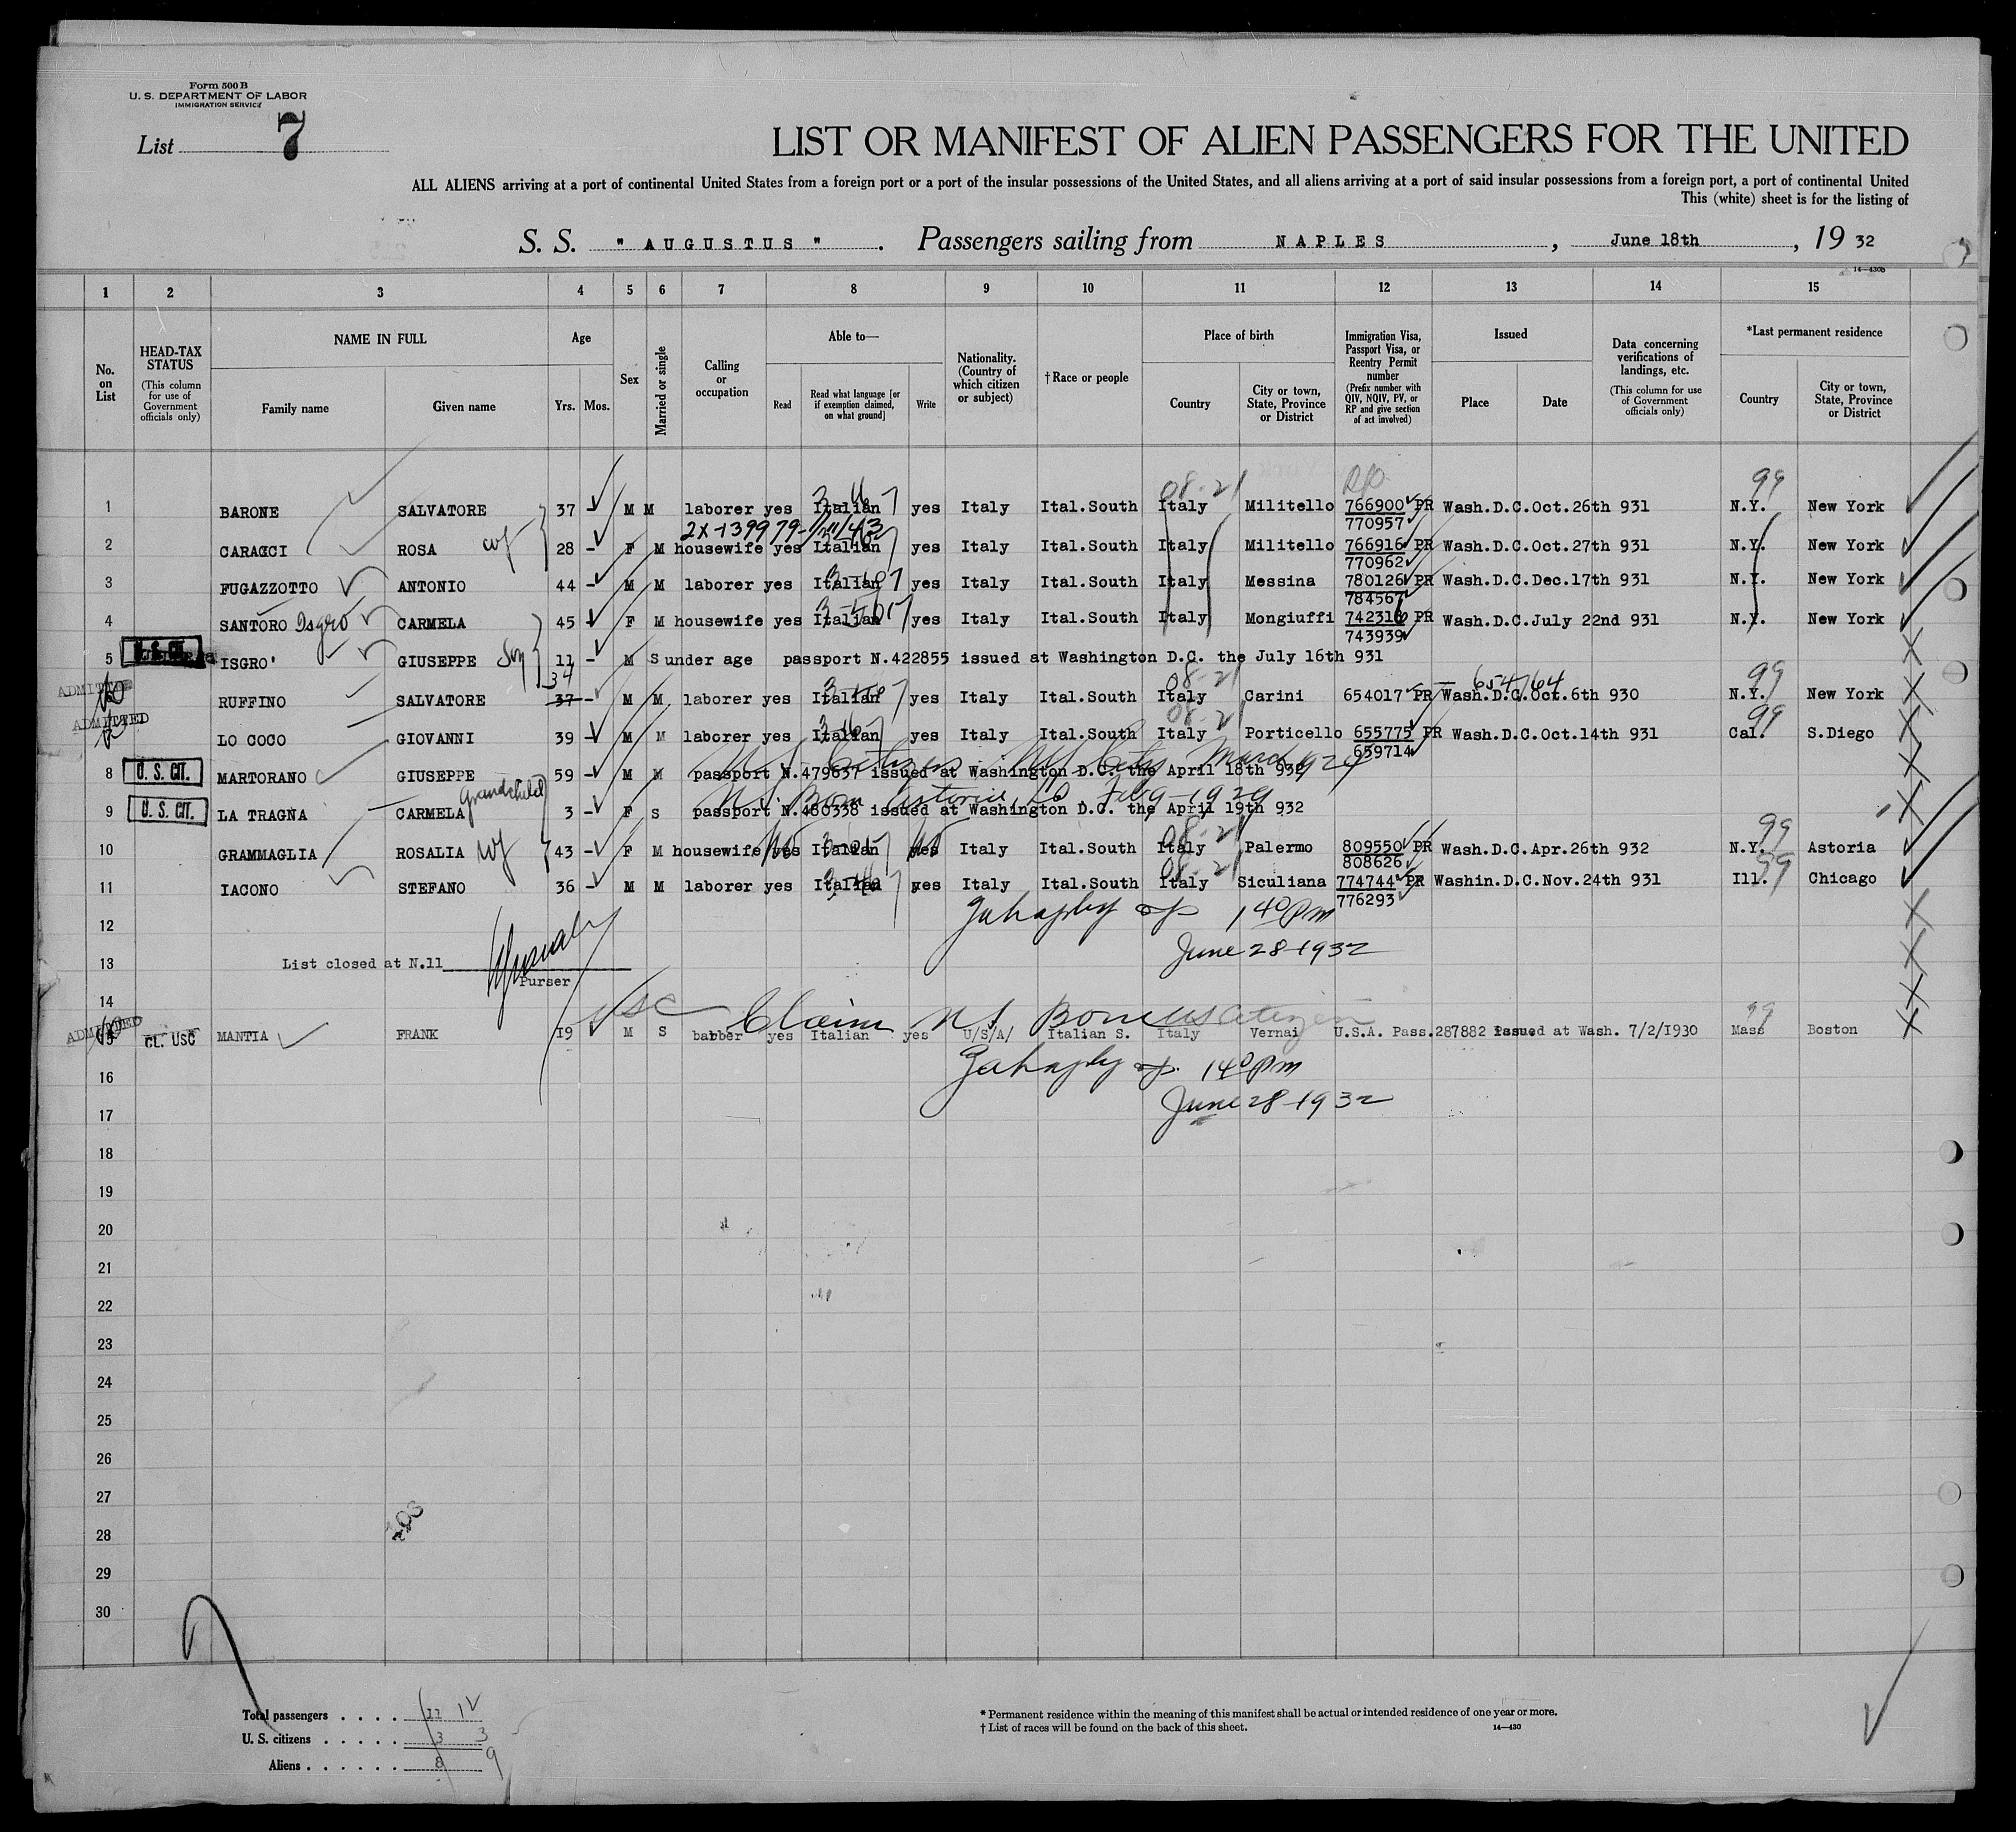 Form 500 B
U. S. DEPARTMENT OF LABOR
IMMIGRATION SERVICE
List 7
LIST OR MANIFEST OF ALIEN PASSENGERS FOR THE UNITED
ALL ALIENS arriving at a port of continental United States from a foreign port or a port of the insular possessions of the United States, and all aliens arriving at a port of said insular possessions from a foreign port, a port of continental United
This (white) sheet is for the listing of
S. S. " AUGUSTUS " . Passengers sailing from NAPLES , June 18th , 19 32
14—430B
1 2 3 4 5 6 7 8 9 10 11 12 13 14 15
No. on List
HEAD-TAX STATUS (This column for use of Government officials only)
NAME IN FULL
Family name Given name
Age
Yrs. Mos.
Sex
Married or single
Calling or occupation
Able to—
Read
Read what language [or if exemption claimed, on what ground]
Write
Nationality. (Country of which citizen or subject)
† Race or people
Place of birth
Country
City or town, State, Province or District
Immigration Visa, Passport Visa, or Reentry Permit number (Prefix number with QIV, NQIV, PV, or RP and give section of act involved)
Issued
Place Date
Data concerning verifications of landings, etc. (This column for use of Government officials only)
*Last permanent residence
Country
City or town, State, Province or District
08-21 99
1 BARONE SALVATORE 37 M M laborer yes Italian yes Italy Ital.South Italy Militello 766900 PR Wash.D.C.Oct.26th 931 N.Y. New York
770957
2X-139979-
2 CARACCI ROSA wf 28 - F M housewife yes Italian yes Italy Ital.South Italy Militello 766916 PR Wash.D.C.Oct.27th 931 N.Y. New York
770962
3 FUGAZZOTTO ANTONIO 44 - M M laborer yes Italian yes Italy Ital.South Italy Messina 780126 PR Wash.D.C.Dec.17th 931 N.Y. New York
784567
4 SANTORO Isgro CARMELA 45 F M housewife yes Italian yes Italy Ital.South Italy Mongiuffi 742316 PR Wash.D.C.July 22nd 931 N.Y. New York
743939
5 ISGRO' GIUSEPPE Son 11 - M S under age passport N.422855 issued at Washington D.C. the July 16th 931
ADMITTED 34 08-21 654764 99
RUFFINO SALVATORE 37 - M M laborer yes Italian yes Italy Ital.South Italy Carini 654017 PR Wash.D.C.Oct.6th 930 N.Y. New York
ADMITTED 08-21 99
LO COCO GIOVANNI 39 - M M laborer yes Italian yes Italy Ital.South Italy Porticello 655775 PR Wash.D.C.Oct.14th 931 Cal. S.Diego
659714
8 U. S. CIT. MARTORANO GIUSEPPE 59 - M M passport N.479637 issued at Washington D.C. the April 18th 932
grandchild
9 U. S. CIT. LA TRAGNA CARMELA 3 - F S passport N.480338 issued at Washington D.C. the April 19th 932
08-21 99
10 GRAMMAGLIA ROSALIA wf 43 - F M housewife yes Italian yes Italy Ital.South Italy Palermo 809550 PR Wash.D.C.Apr.26th 932 N.Y. Astoria
808626
08-21 99
11 IACONO STEFANO 36 - M M laborer yes Italian yes Italy Ital.South Italy Siculiana 774744 PR Washin.D.C.Nov.24th 931 Ill. Chicago
776293
12 1 40 PM
June 28-1932
13 List closed at N.11
Purser
14
USC Claim US Born US Citizen 99
ADMITTED CL. USC MANTIA FRANK 19 M S barber yes Italian yes U/S/A/ Italian S. Italy Vernai U.S.A. Pass.287882 Issued at Wash. 7/2/1930 Mass Boston
16 1 40 PM
June 28-1932
17
18
19
20
21
22
23
24
25
26
27
28
29
30
Total passengers . . . . 11 12
U. S. citizens . . . . . 3 3
Aliens . . . . . . 8 9
* Permanent residence within the meaning of this manifest shall be actual or intended residence of one year or more.
† List of races will be found on the back of this sheet. 14—430